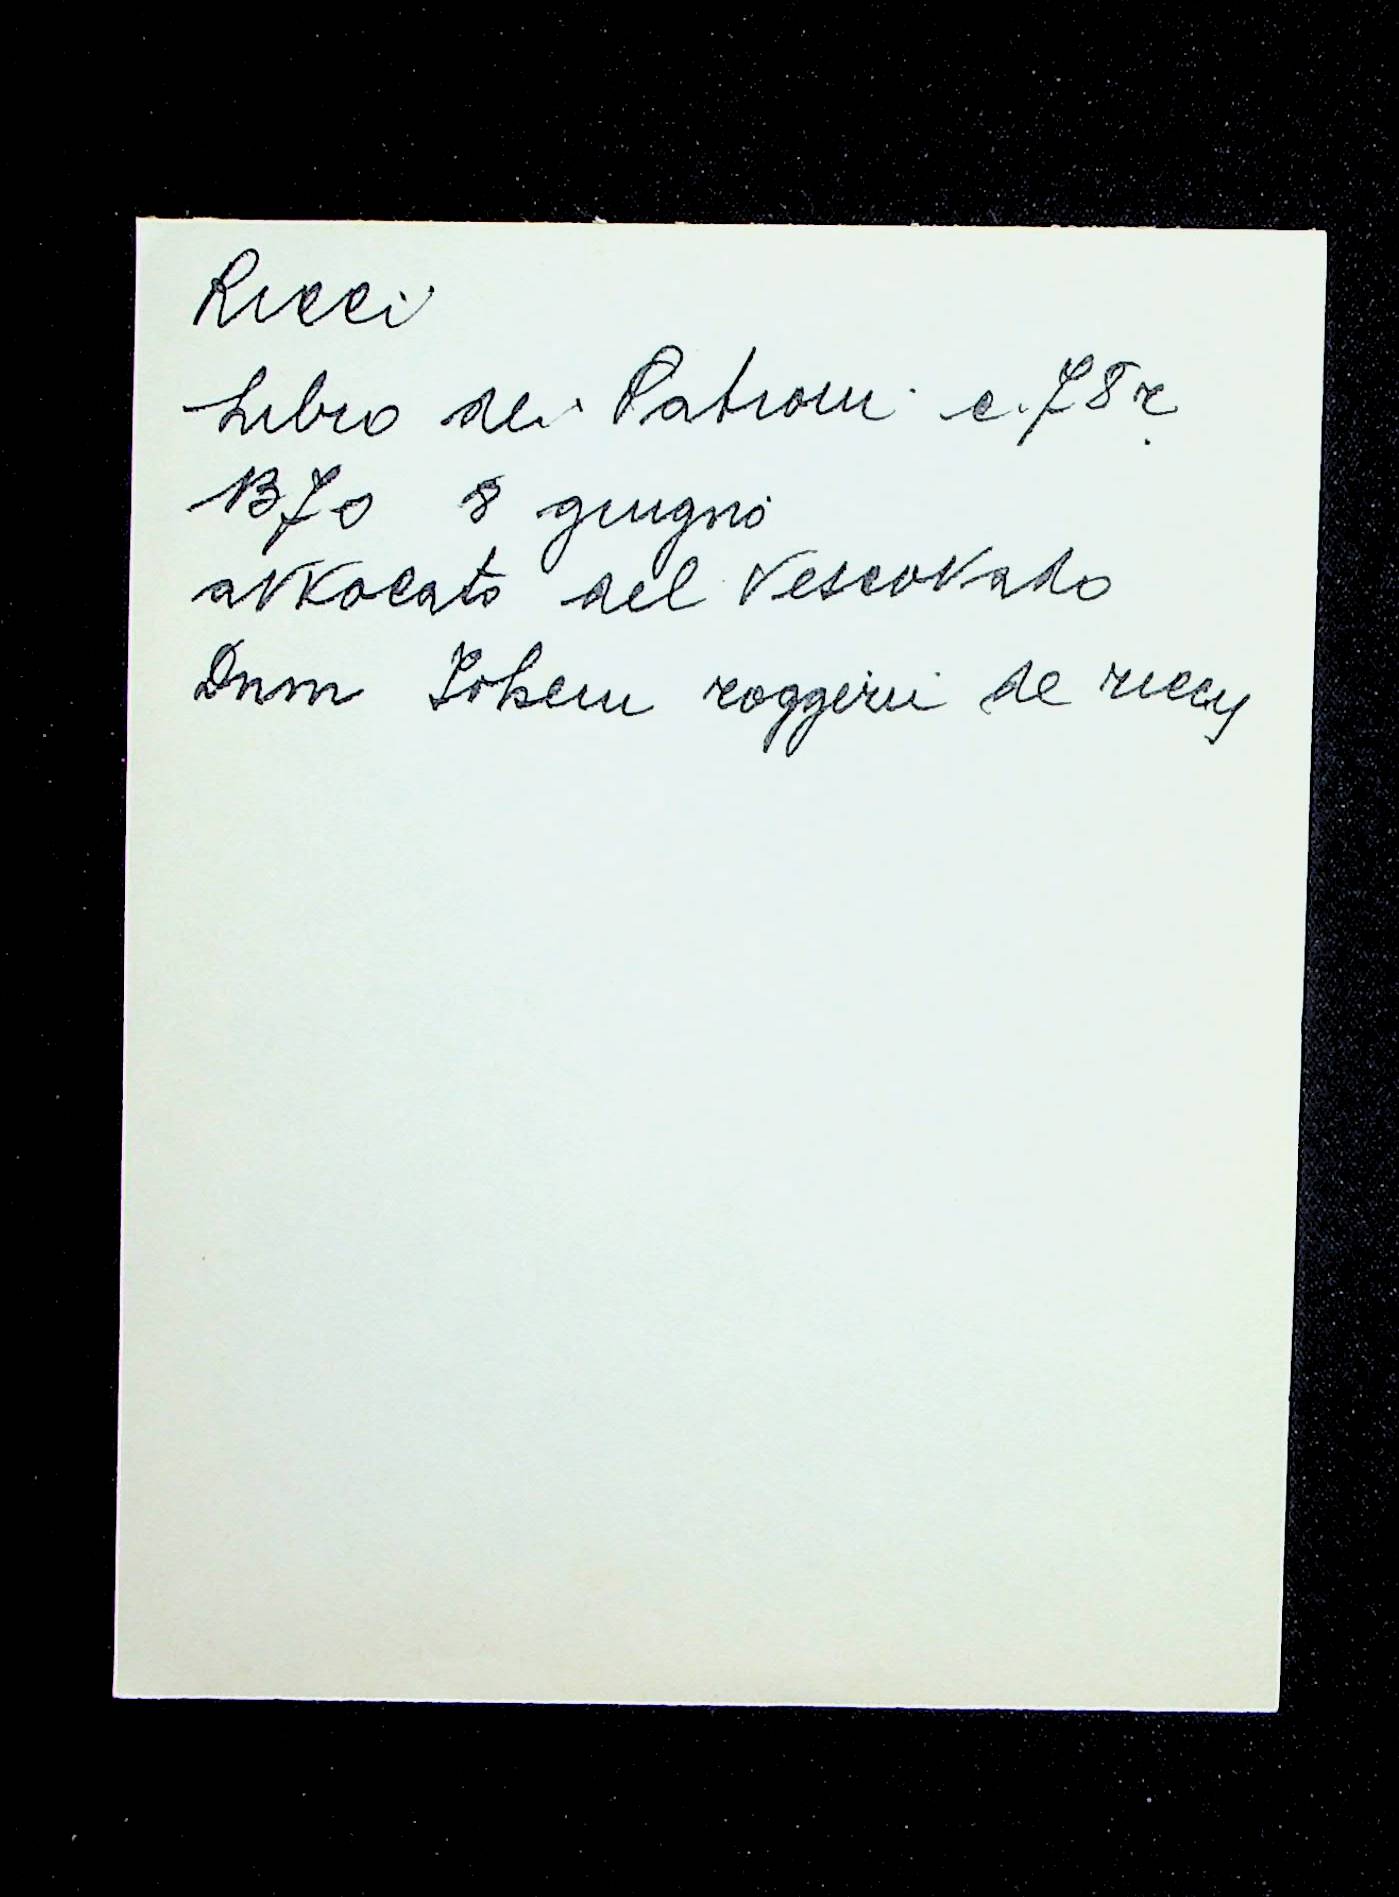 Ricci
Libro dei Patroni c. 78 r.
1370 8 giugno
avvocato del Vescovado
Dnm Iohem roggerii de riccy